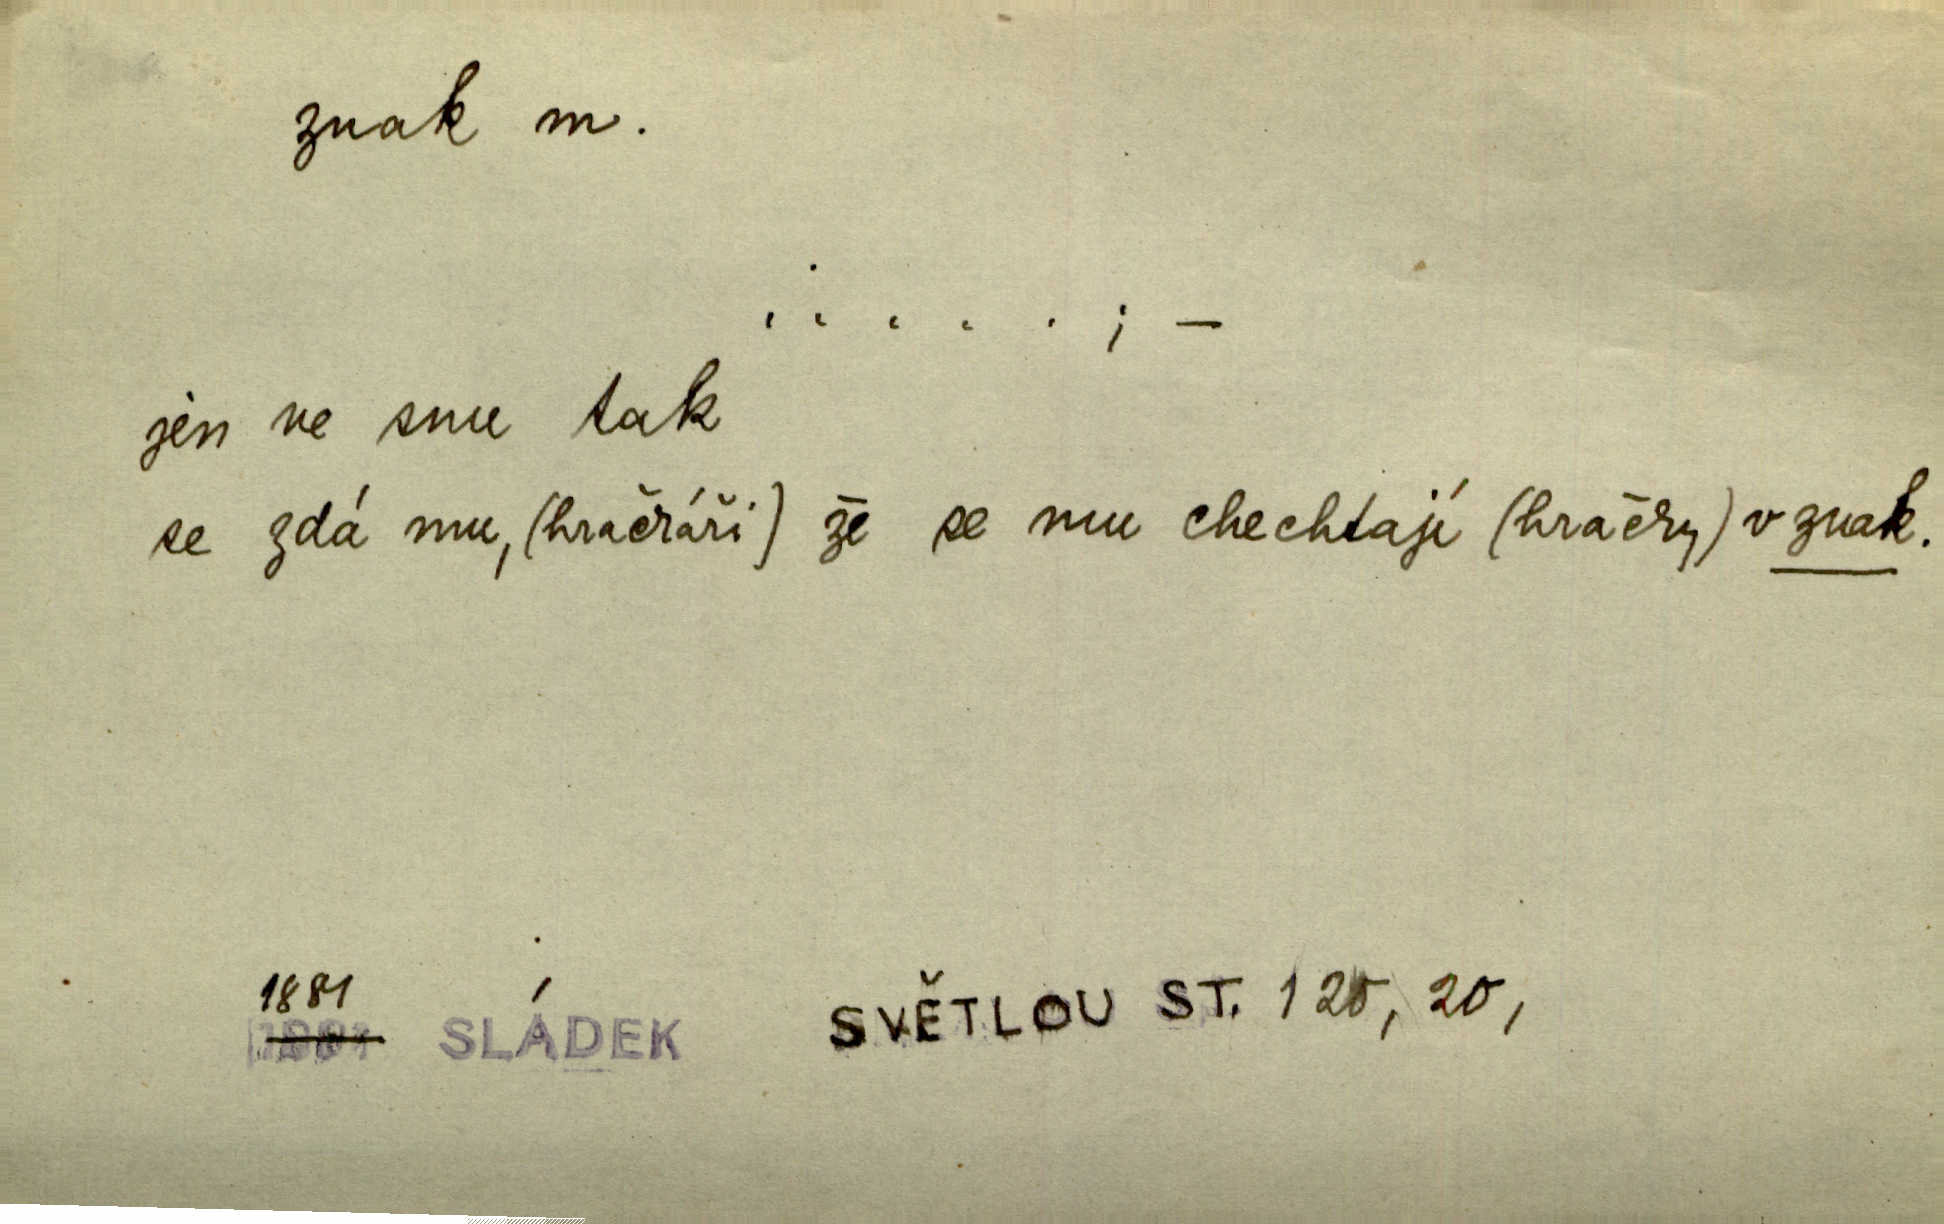 znak m.
. . . . . ; —
jen ve snu tak
se zdá mu, (hračkáři) že se mu chechtají (hračky) v znak.
1881
SLÁDEK SVĚTLOU ST. 120, 20,